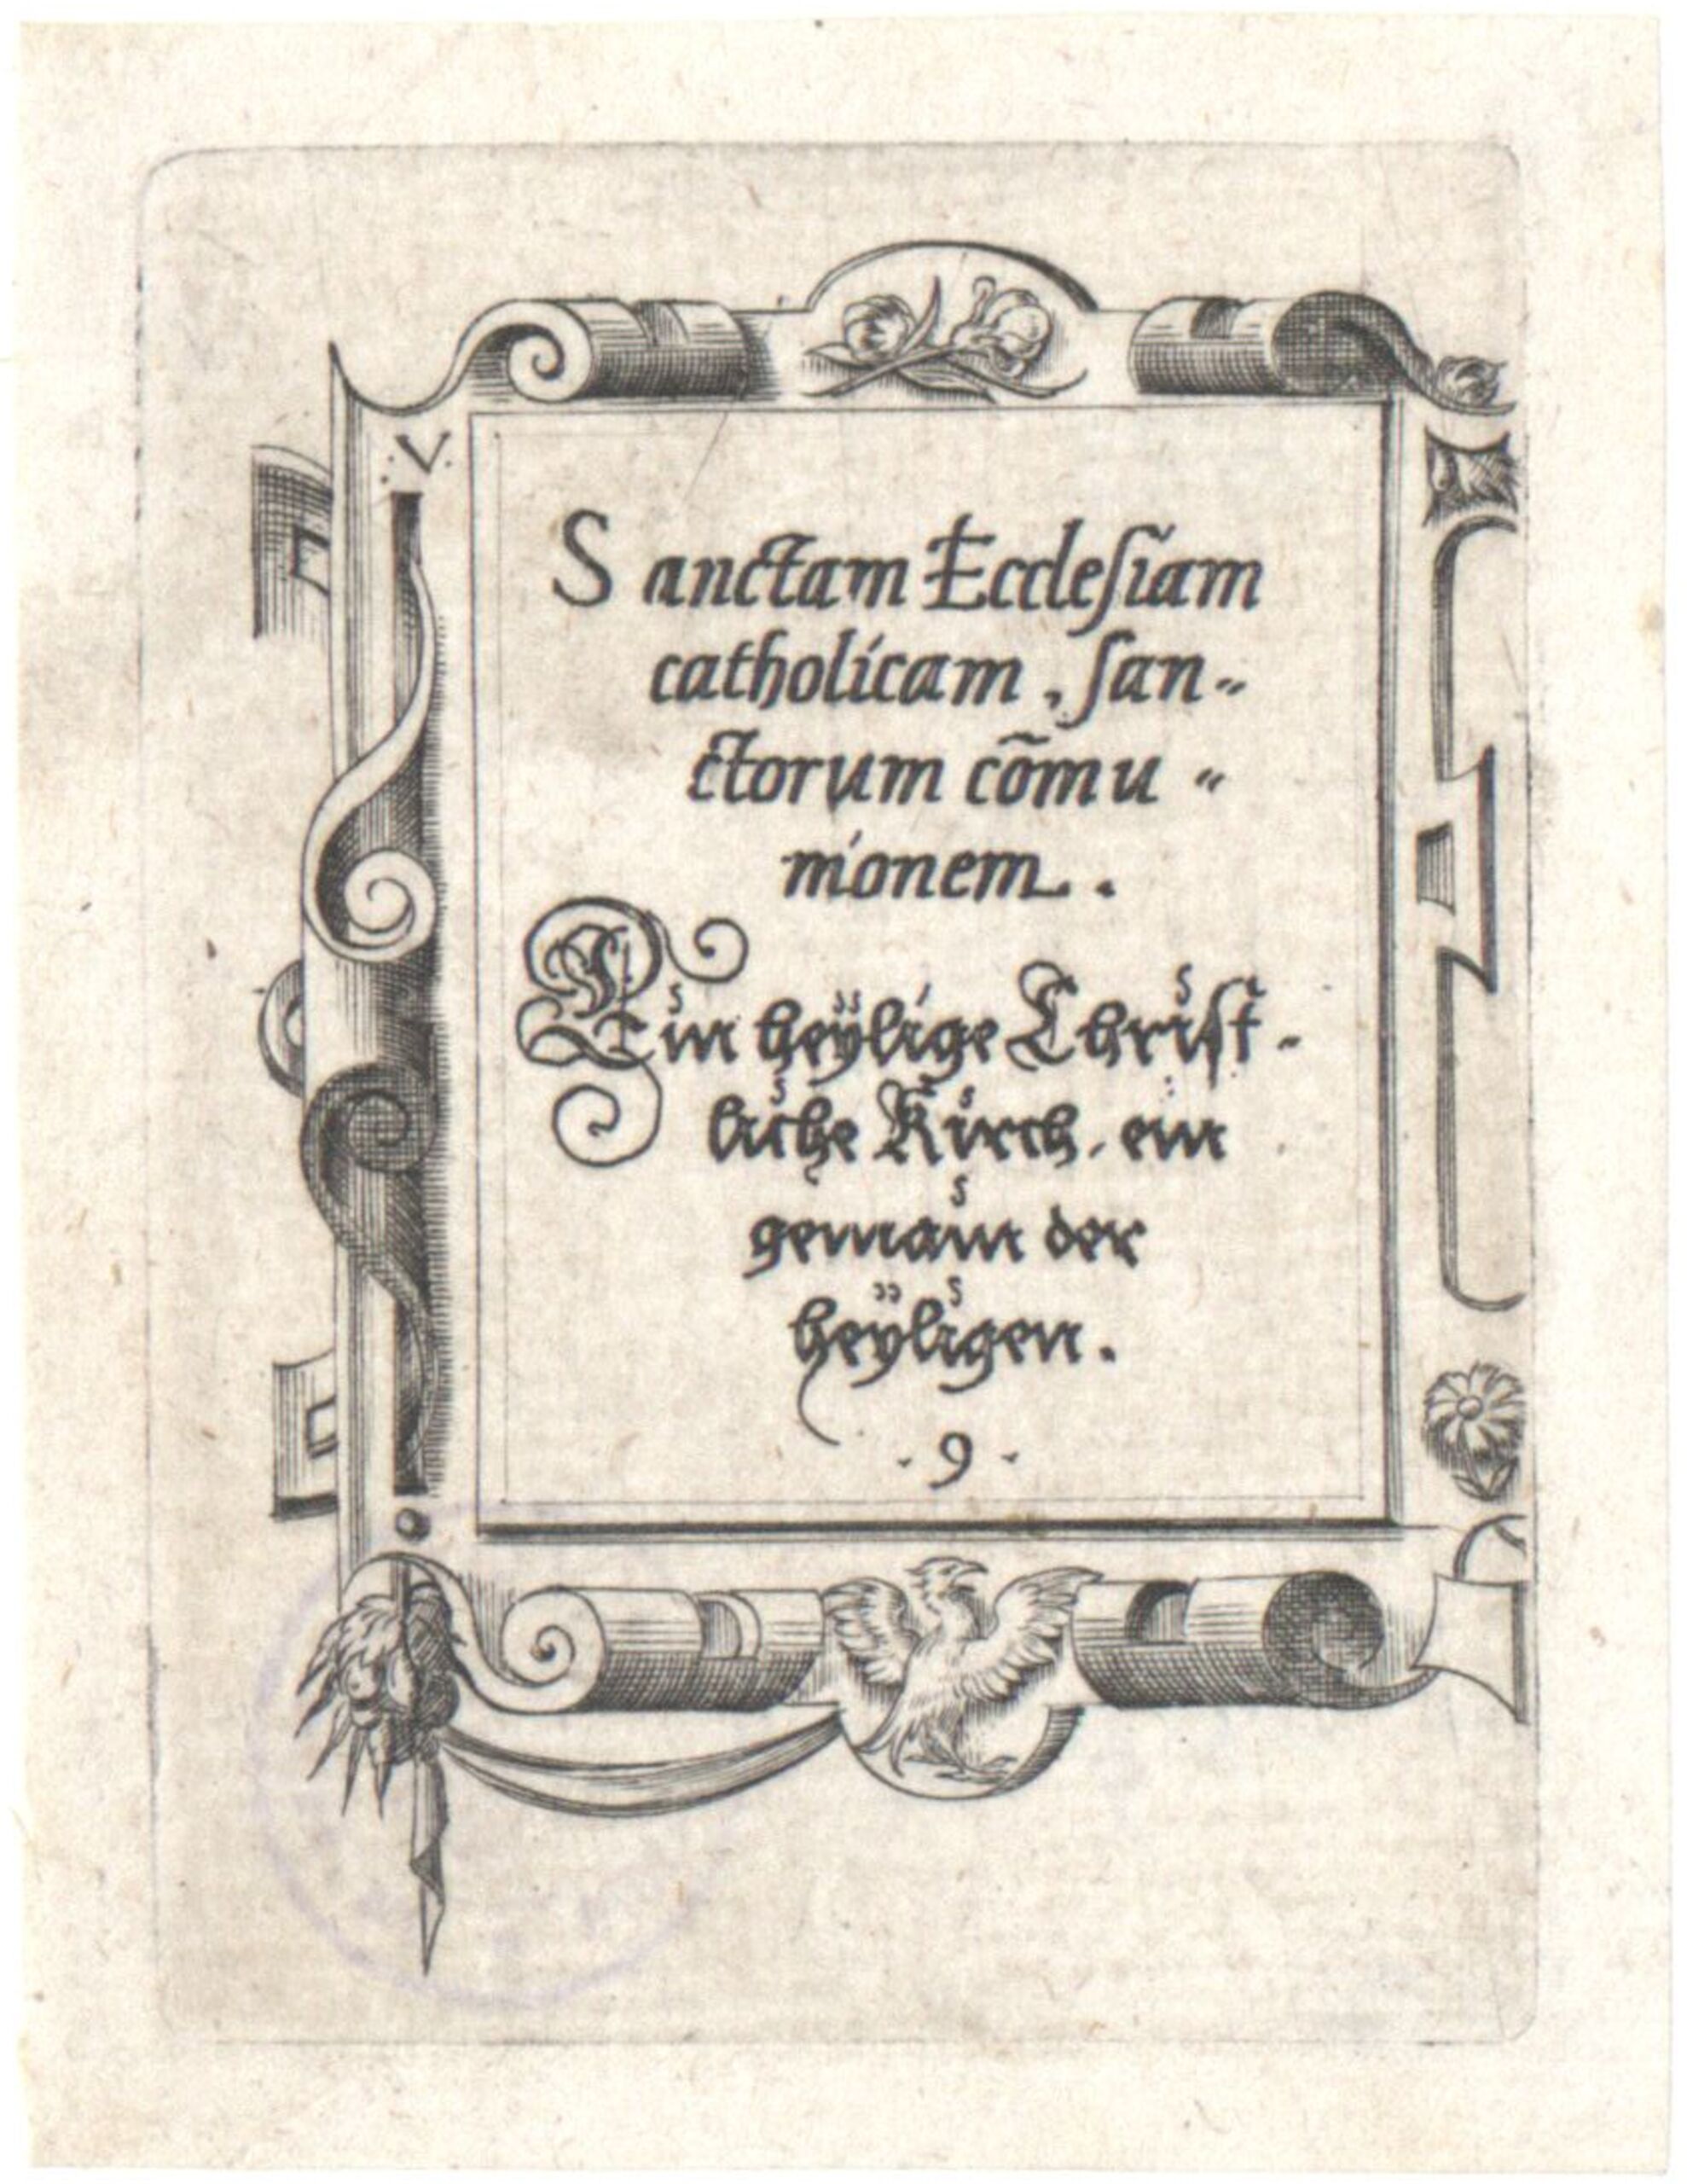 V
Sanctam Eccleſiam
catholicam, ſan⸗
ctorum cõmu⸗
nionem.
Ein heÿlige Chriſt-
liche Kirch, ein
gemain der
heÿligen.
·9·